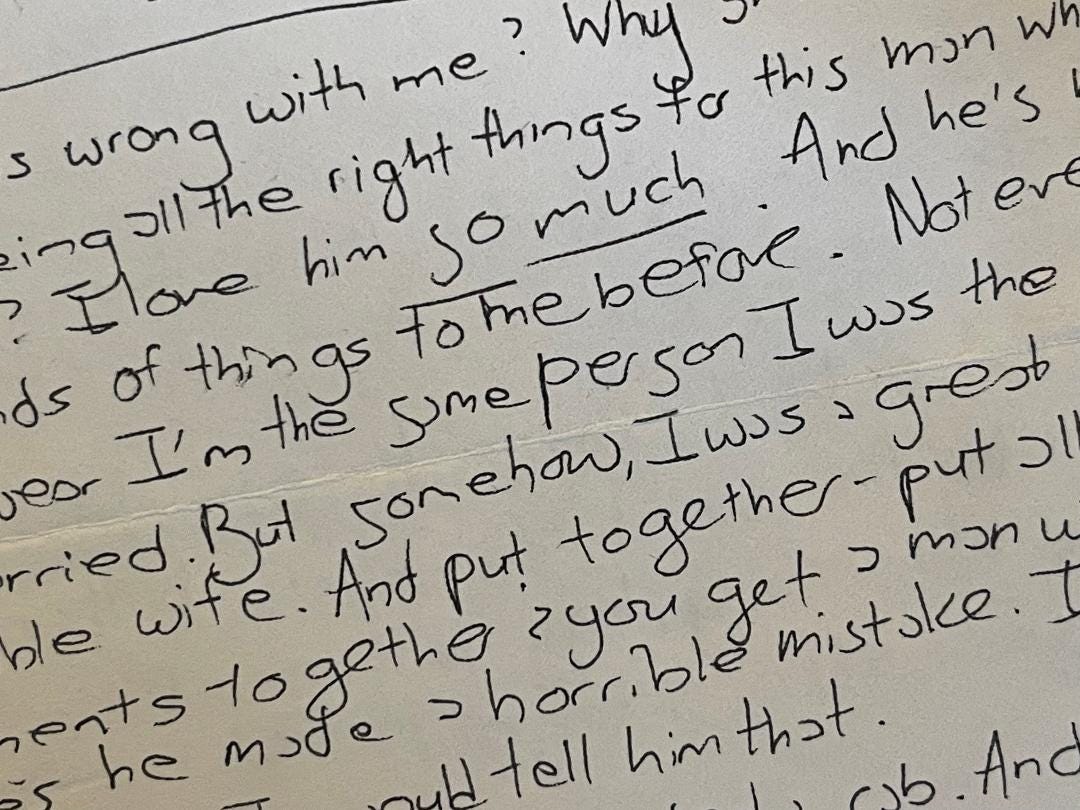 s wrong with me? Why
eing all the right things for this man wh
? I love him so much. And he's
nds of things to me before. Not eve
wear I'm the same person I was the
rried. But somehow, I was a great
ble wife. And put together - put all
ments together, you get a man w
es he made a horrible mistake. I
ould tell him that.
And